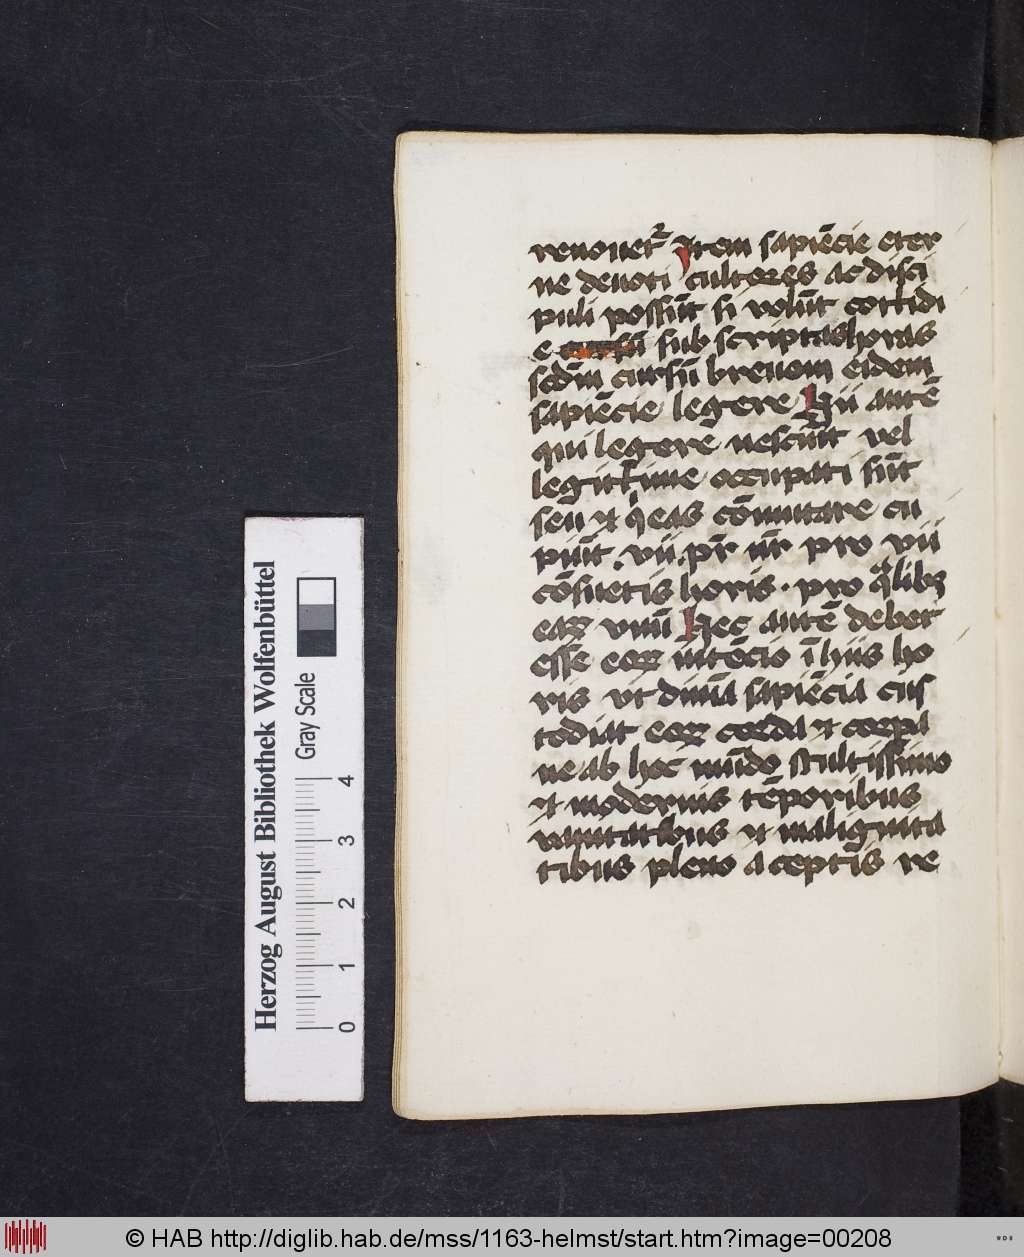 renouet᷑ Item sapiēcie eter
ne deuoti cultores ac disci
puli possūt si volūt cottidi
e sub scriptas horas
scd̄m cursū breuem eidem
sapiēcie legere Hii autē
qui legere nesciūt vel
legittime occupati sūt
seu et eas cōmutare cu
piūt . vii . pr̄ nr̄ pro vii
cōsuetis horis . pro qͣlibꝫ
eaꝝ vnū Hec autē debet
esse eoꝝ intēcio ī hiis ho
ris vt diuīa sapiēcia cus
todiat eoꝝ corda et corpa
ne ab hoc mūdo stultissimo
et modernis tēporibus
vanitatibus et malignita
tibus pleno aceptis re
Herzog August Bibliothek Wolfenbüttel
Gray Scale
0 1 2 3 4
© HAB http://diglib.hab.de/mss/1163-helmst/start.htm?image=00208